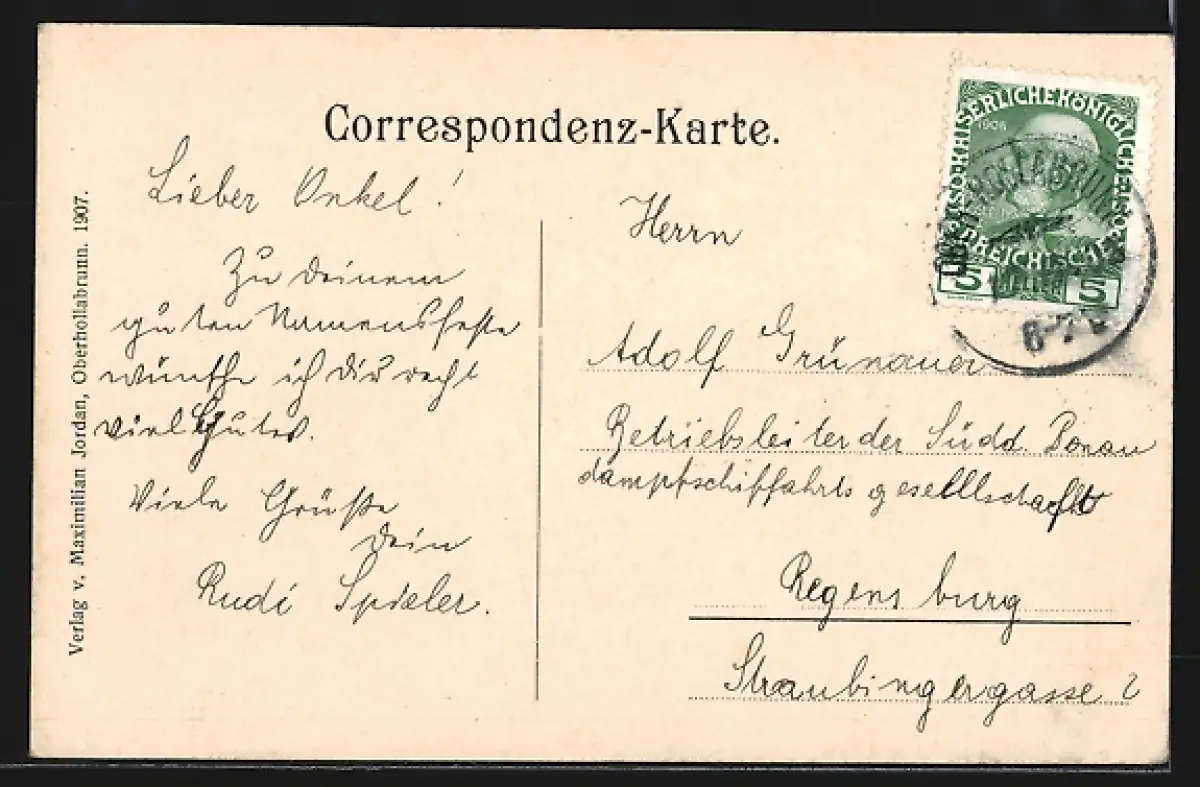 Correspondenz-Karte.
Lieber Onkel!
Zu deinem
guten Namensfeste
wünsche ich dir recht
viel Gutes.
Viele Grüße
Dein
Rudi Spieler.
Verlag v. Maximilian Jordan, Oberhollabrunn. 1907.
Herrn
Adolf Grünauer
Betriebsleiter der Südd. Donau
dampfschiffahrts gesellschaft
Regensburg
Straubingergasse 2
KAISERLICHEKÖNIGLICHE
ÖSTERREICHISCHE
POST
1908
5 HELLER 5
OBER-HOLLABRUNN